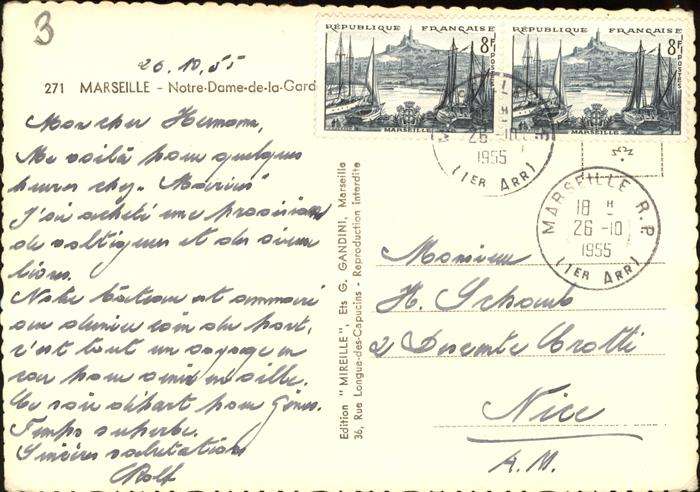 3
26.10.55
271 MARSEILLE - Notre-Dame-de-la-Gard
Mon cher Hermann,
Me voilà pour quelques
heures chez "Marius"
J'ai acheté une provision
de voltigeurs et de
Notre bateau est ammarré
au dernier coin du port,
c'est tout un voyage en
pour venir en ville.
Ce soir départ pour Gênes.
Temps superbe.
Sincères salutations
Rolf
Edition "MIREILLE", Ets G. GANDINI, Marseille
36, Rue Longue-des-Capucins - Reproduction Interdite
RÉPUBLIQUE FRANÇAISE
8F
POSTES
MARSEILLE
RÉPUBLIQUE FRANÇAISE
8F
POSTES
MARSEILLE
26-10
1955
(1ER ARR)
MARSEILLE R.P.
18 H
26-10
1955
(1ER ARR)
Monsieur
H. Schaub
2 Descente Crotti
Nice
A.M.